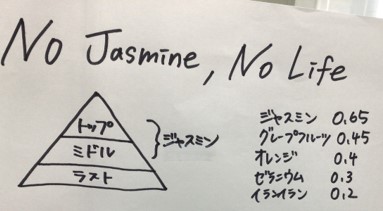 No Jasmine, No Life
トップ
ミドル
ラスト
ジャスミン
ジャスミン 0.65
グレープフルーツ 0.45
オレンジ 0.4
ゼラニウム 0.3
イランイラン 0.2